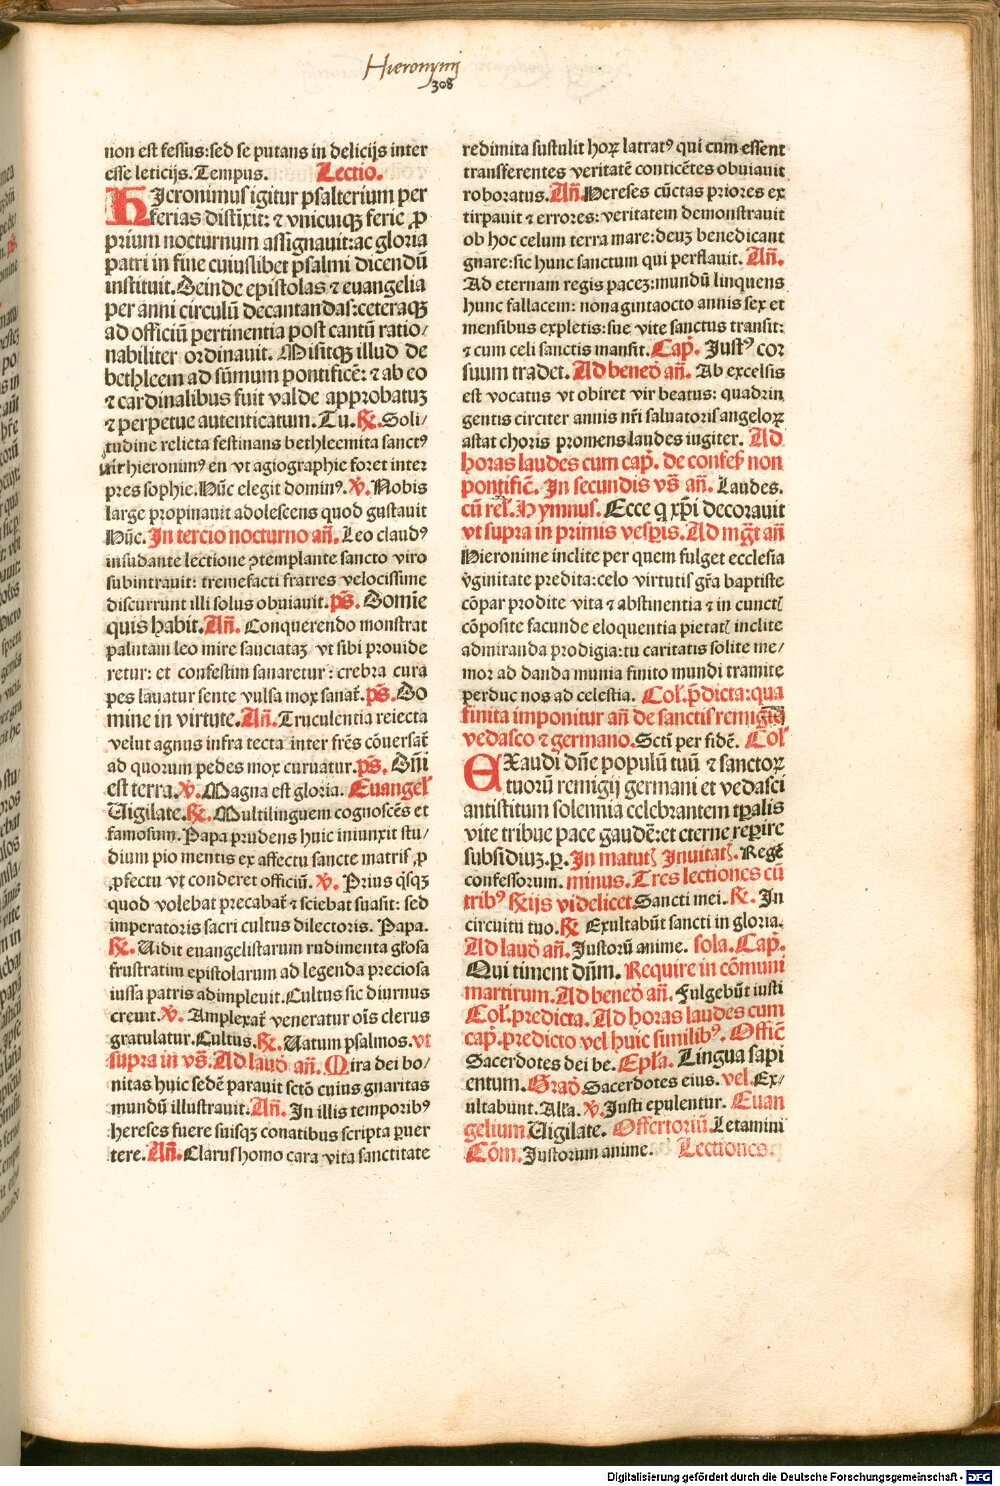 Hieronymj
308
non est fessus:sed se putans in delicijs inter
esse leticijs. Tempus. Lectio.
Hieronimus igitur psalterium per
ferias distīxit: ⁊ vnicuiqꝫ ferie ꝓ
prium nocturnum assignauit:ac gloria
patri in fine cuiuslibet psalmi dicendū
instituit. Deinde epistolas ⁊ euangelia
per anni circulū decantandas:ceteraqꝫ
ad officiū pertinentia post cantū ratio/
nabiliter ordinauit. Misitqꝫ illud de
bethleem ad sūmum pontificē: ⁊ ab eo
⁊ cardinalibus fuit valde approbatuꝫ
⁊ perpetue autenticatum. Tu. ℞. Soli/
tudine relicta festinans bethleemita sanctꝰ
vir hieronimꝰ en vt agiographie foret inter
pres sophie. Nūc elegit dominꝰ. ℣. Nobis
large propinauit adolescens quod gustauit
Nūc. In tercio nocturno añ. Leo claudꝰ
insudante lectione ꝯtemplante sancto viro
subintrauit: tremefacti fratres velocissime
discurrunt illi solus obuiauit. ps̄. Domīe
quis habit. Añ. Conquerendo monstrat
palmam leo mire sauciataꝫ vt sibi prouide
retur: et confestim sanaretur: crebra cura
pes lauatur sente vulsa mox sanat̄. ps̄. Do
mine in virtute. Añ. Truculentia reiecta
velut agnus infra tecta inter frēs cōuersat̄
ad quorum pedes mox curuatur. ps̄. Dñi
est terra. ℣. Magna est gloria. Euangeł
Uigilate. ℞. Multilinguem cognoscēs et
famosum. Papa prudens huic iniunxit stu/
dium pio mentis ex affectu sancte matris ꝓ
ꝓfectu vt conderet officiū. ℣. Prius q̄sqꝫ
quod volebat precabat̄ ⁊ sciebat suasit: sed
imperatoris sacri cultus dilectoris. Papa.
℞. Uidit euangelistarum rudimenta glosa
frustratim epistolarum ad legenda preciosa
iussa patris adimpleuit. Cultus sic diurnus
creuit. ℣. Amplexat̄ veneratur oīs clerus
gratulatur. Cultus. ℞. Uatum psalmos. vt
supra in vs̄. Ad laud̉ añ. Mira dei bo/
nitas huic sedē parauit sctō cuius gnaritas
mundū illustrauit. Añ. In illis temporibꝰ
hereses fuere suisqꝫ conatibus scripta ꝑuer
tere. Añ. Clarus homo cara vita sanctitate
redimita sustulit hoꝝ latratꝰ qui cum essent
transferentes veritatē conticētes obuiauit
roboratus. Añ. Hereses cūctas priores ex
tirpauit ⁊ errores: veritatem demonstrauit
ob hoc celum terra mare: deuꝫ benedicant
gnare: sic hunc sanctum qui perflauit. Añ.
Ad eternam regis paceꝫ: mundū linquens
hunc fallacem: nonagintaocto annis sex et
mensibus expletis: sue vite sanctus transit:
⁊ cum celi sanctis mansit. Cap̄. Justꝰ cor
suum tradet. Ad bened̉ añ. Ab excelsis
est vocatus vt obiret vir beatus: quadrin
gentis circiter annis nr̄i saluatoris angeloꝝ
astat choris promens laudes iugiter. Ad
horas laudes cum cap̄. de confes̄ non
pontific̄. In secundis vs̄ añ. Laudes.
cū rel̄. Hymnus. Ecce q̄ xp̄i decorauit
vt supra in primis vesp̄is. Ad mgt̄ añ
Hieronime inclite per quem fulget ecclesia
v̄ginitate predita: celo virtutis gr̄a baptiste
cōpar prodite vita ⁊ abstinentia ⁊ in cunctꝭ
cōposite facunde eloquentia pietatꝭ inclite
admiranda prodigia: tu caritatis solite me/
mor ad danda munia finito mundi tramite
perduc nos ad celestia. Coł. p̄dicta: qua
finita imponitur añ de sanctis remigio
vedasco ⁊ germano. Scti per fidē. Coł
EXaudi dn̄e populū tuū ⁊ sanctoꝝ
tuorū remigij germani et vedasci
antistitum solennia celebrantem tp̄alis
vite tribue pace gaudē: et eterne reperire
subsidiuꝫ. ꝑ. In matutꝭ Inuitatꝭ. Regē
confessorum. minus. Tres lectiones cū
tribꝰ ℞ijs videlicet Sancti mei. ℞. In
circuitu tuo. ℞ Exultabūt sancti in gloria.
Ad laud̉ añ. Justorū anime. sola. Cap̄.
Qui timent dn̄m. Require in cōmuni
martirum. Ad bened̉ añ. Fulgebūt iusti
Coł. predicta. Ad horas laudes cum
cap̄. predicto vel huic similibꝰ. Offic̄
Sacerdotes dei be. Epl̄a. Lingua sapi
entum. Grad̉ Sacerdotes eius. vel. Ex/
ultabunt. Alla. ℣. Justi epulentur. Euan
gelium. Uigilate. Offertoriū. Letamini
Cōm. Justorum anime. Lectiones.
Digitalisierung gefördert durch die Deutsche Forschungsgemeinschaft - DFG